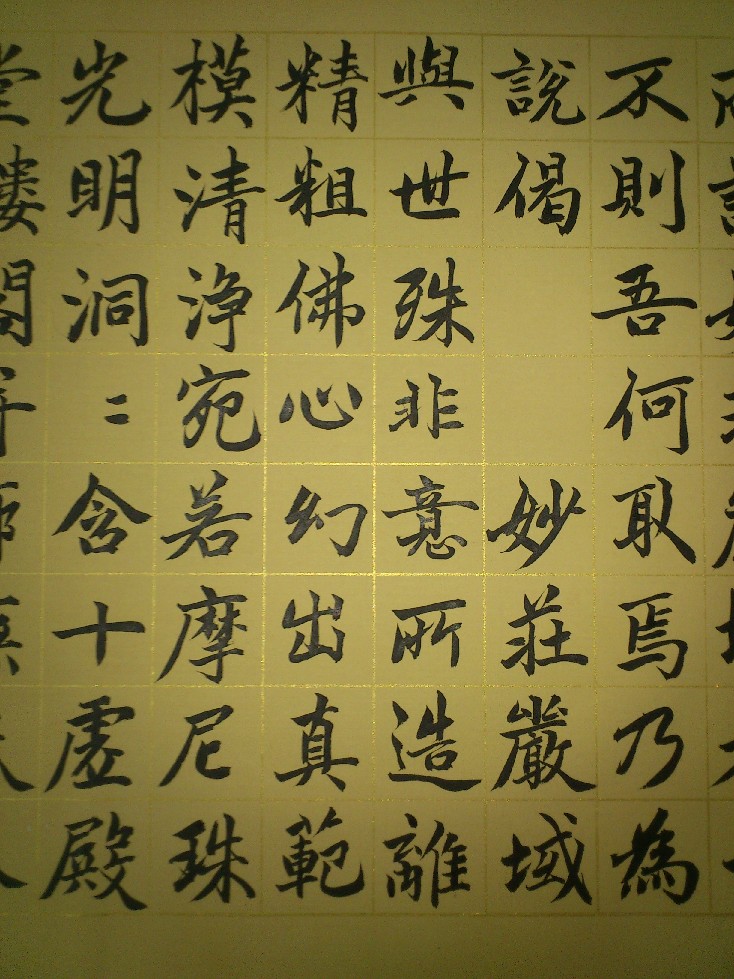 不則吾何取焉乃為
說偈 妙莊嚴域
與世殊非意所造離
精粗佛心幻出真範
模清浄宛若摩尼珠
光明洞〻含十虛殿
堂樓閣